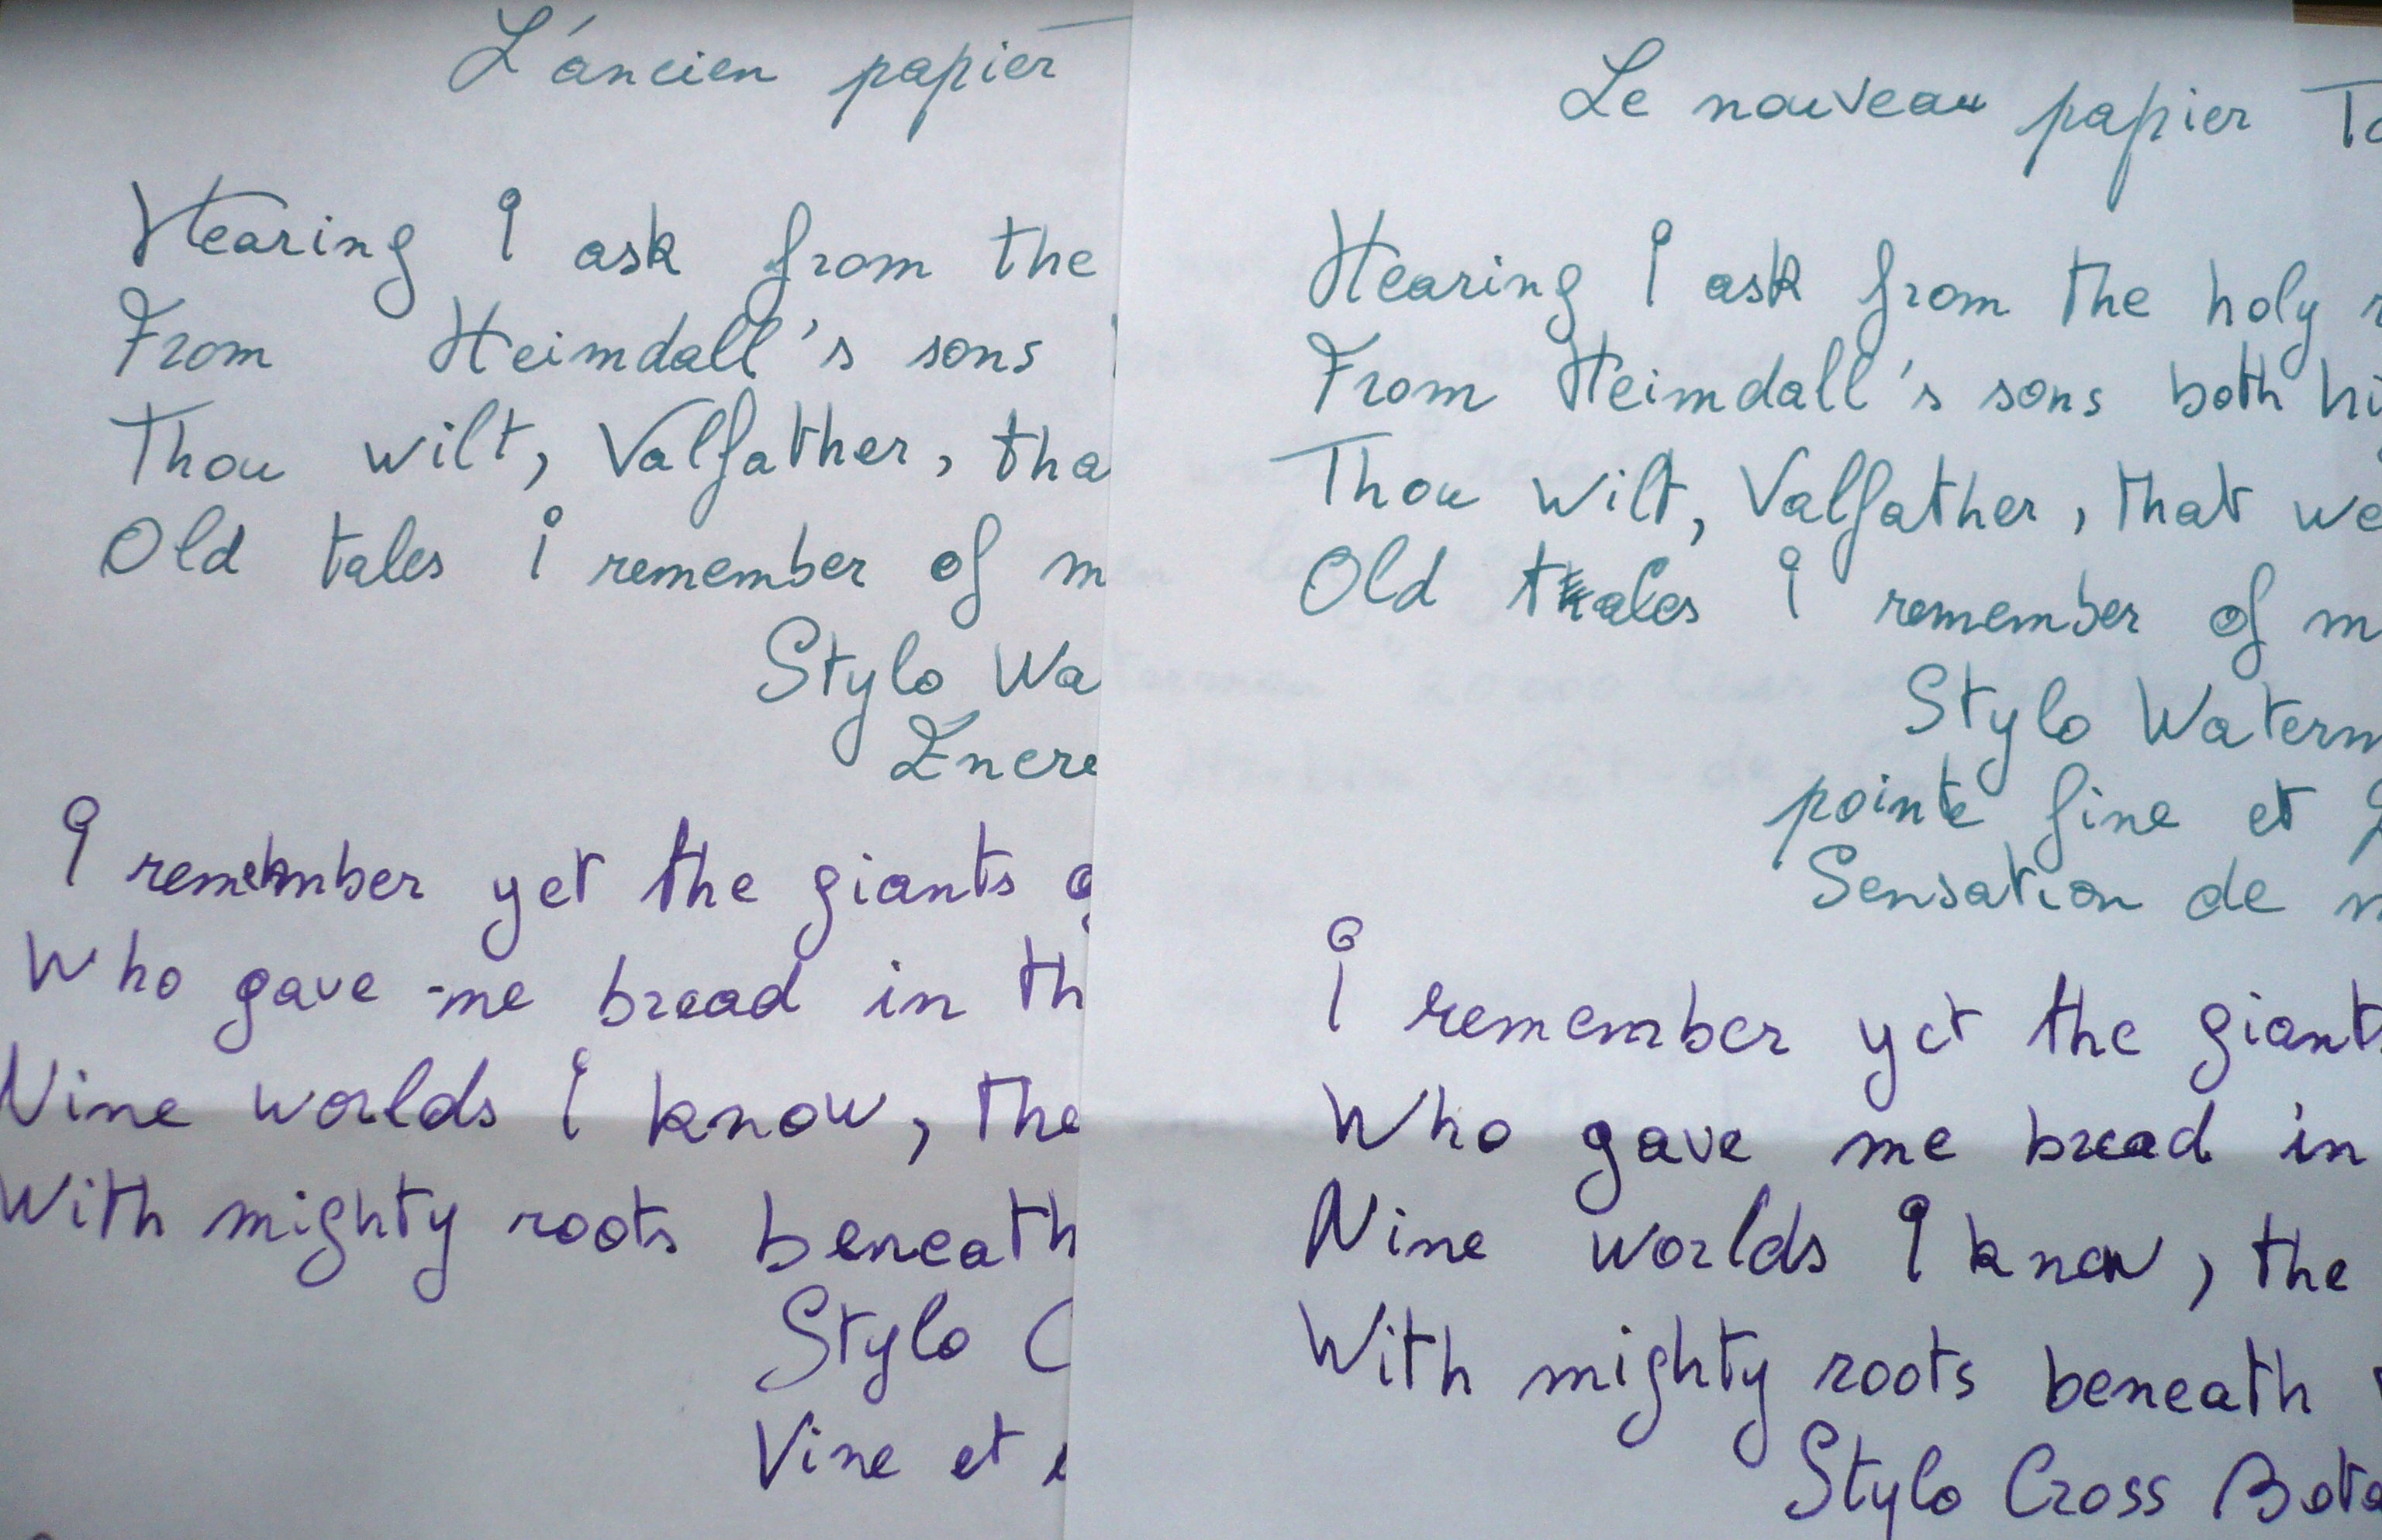 L'ancien papier
Hearing I ask from the
From Heimdall's sons
Thou wilt, Valfather, tha
Old tales I remember of m
Stylo Wa
Encre
I remember yet the giants o
Who gave me bread in th
Nine worlds I know, the
With mighty roots beneath
Stylo C
Vine et
Le nouveau papier To
Hearing I ask from the holy r
From Heimdall's sons both hi
Thou wilt, Valfather, that we
Old tales I remember of m
Stylo Waterm
pointe fine et
Sensation de
I remember yet the giants
Who gave me bread in
Nine worlds I know, the
With mighty roots beneath
Stylo Cross Bota